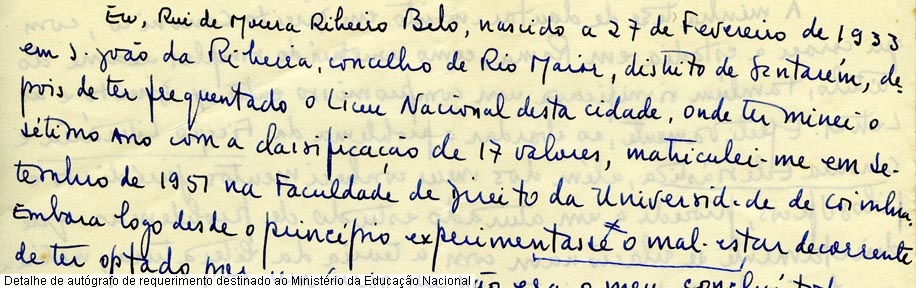 Eu, Rui de Moura Ribeiro Belo, nascido a 27 de Fevereiro de 1933
em S. João da Ribeira, concelho de Rio Maior, distrito de Santarém, de-
pois de ter frequentado o Liceu Nacional desta cidade, onde terminei o
sétimo ano com a classificação de 17 valores, matriculei-me em Se-
tembro de 1951 na Faculdade de Direito da Universidade de Coimbra.
Embora logo desde o princípio experimentasse o mal-estar decorrente
de ter optado
Detalhe de autógrafo de requerimento destinado ao Ministério da Educação Nacional